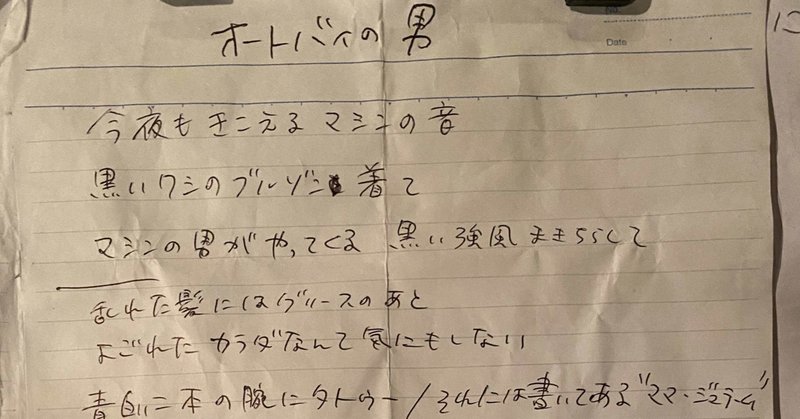 オートバイの男
No.
Date
今夜もきこえるマシンの音
黒いワシのブルゾン 着て
マシンの男がやってくる 黒い強風まきちらして
乱れた髪にはグリースのあと
よごれたカラダなんて気にもしない
青白い二本の腕にタトゥー/それには書いてある"ママ・ジュテーム"